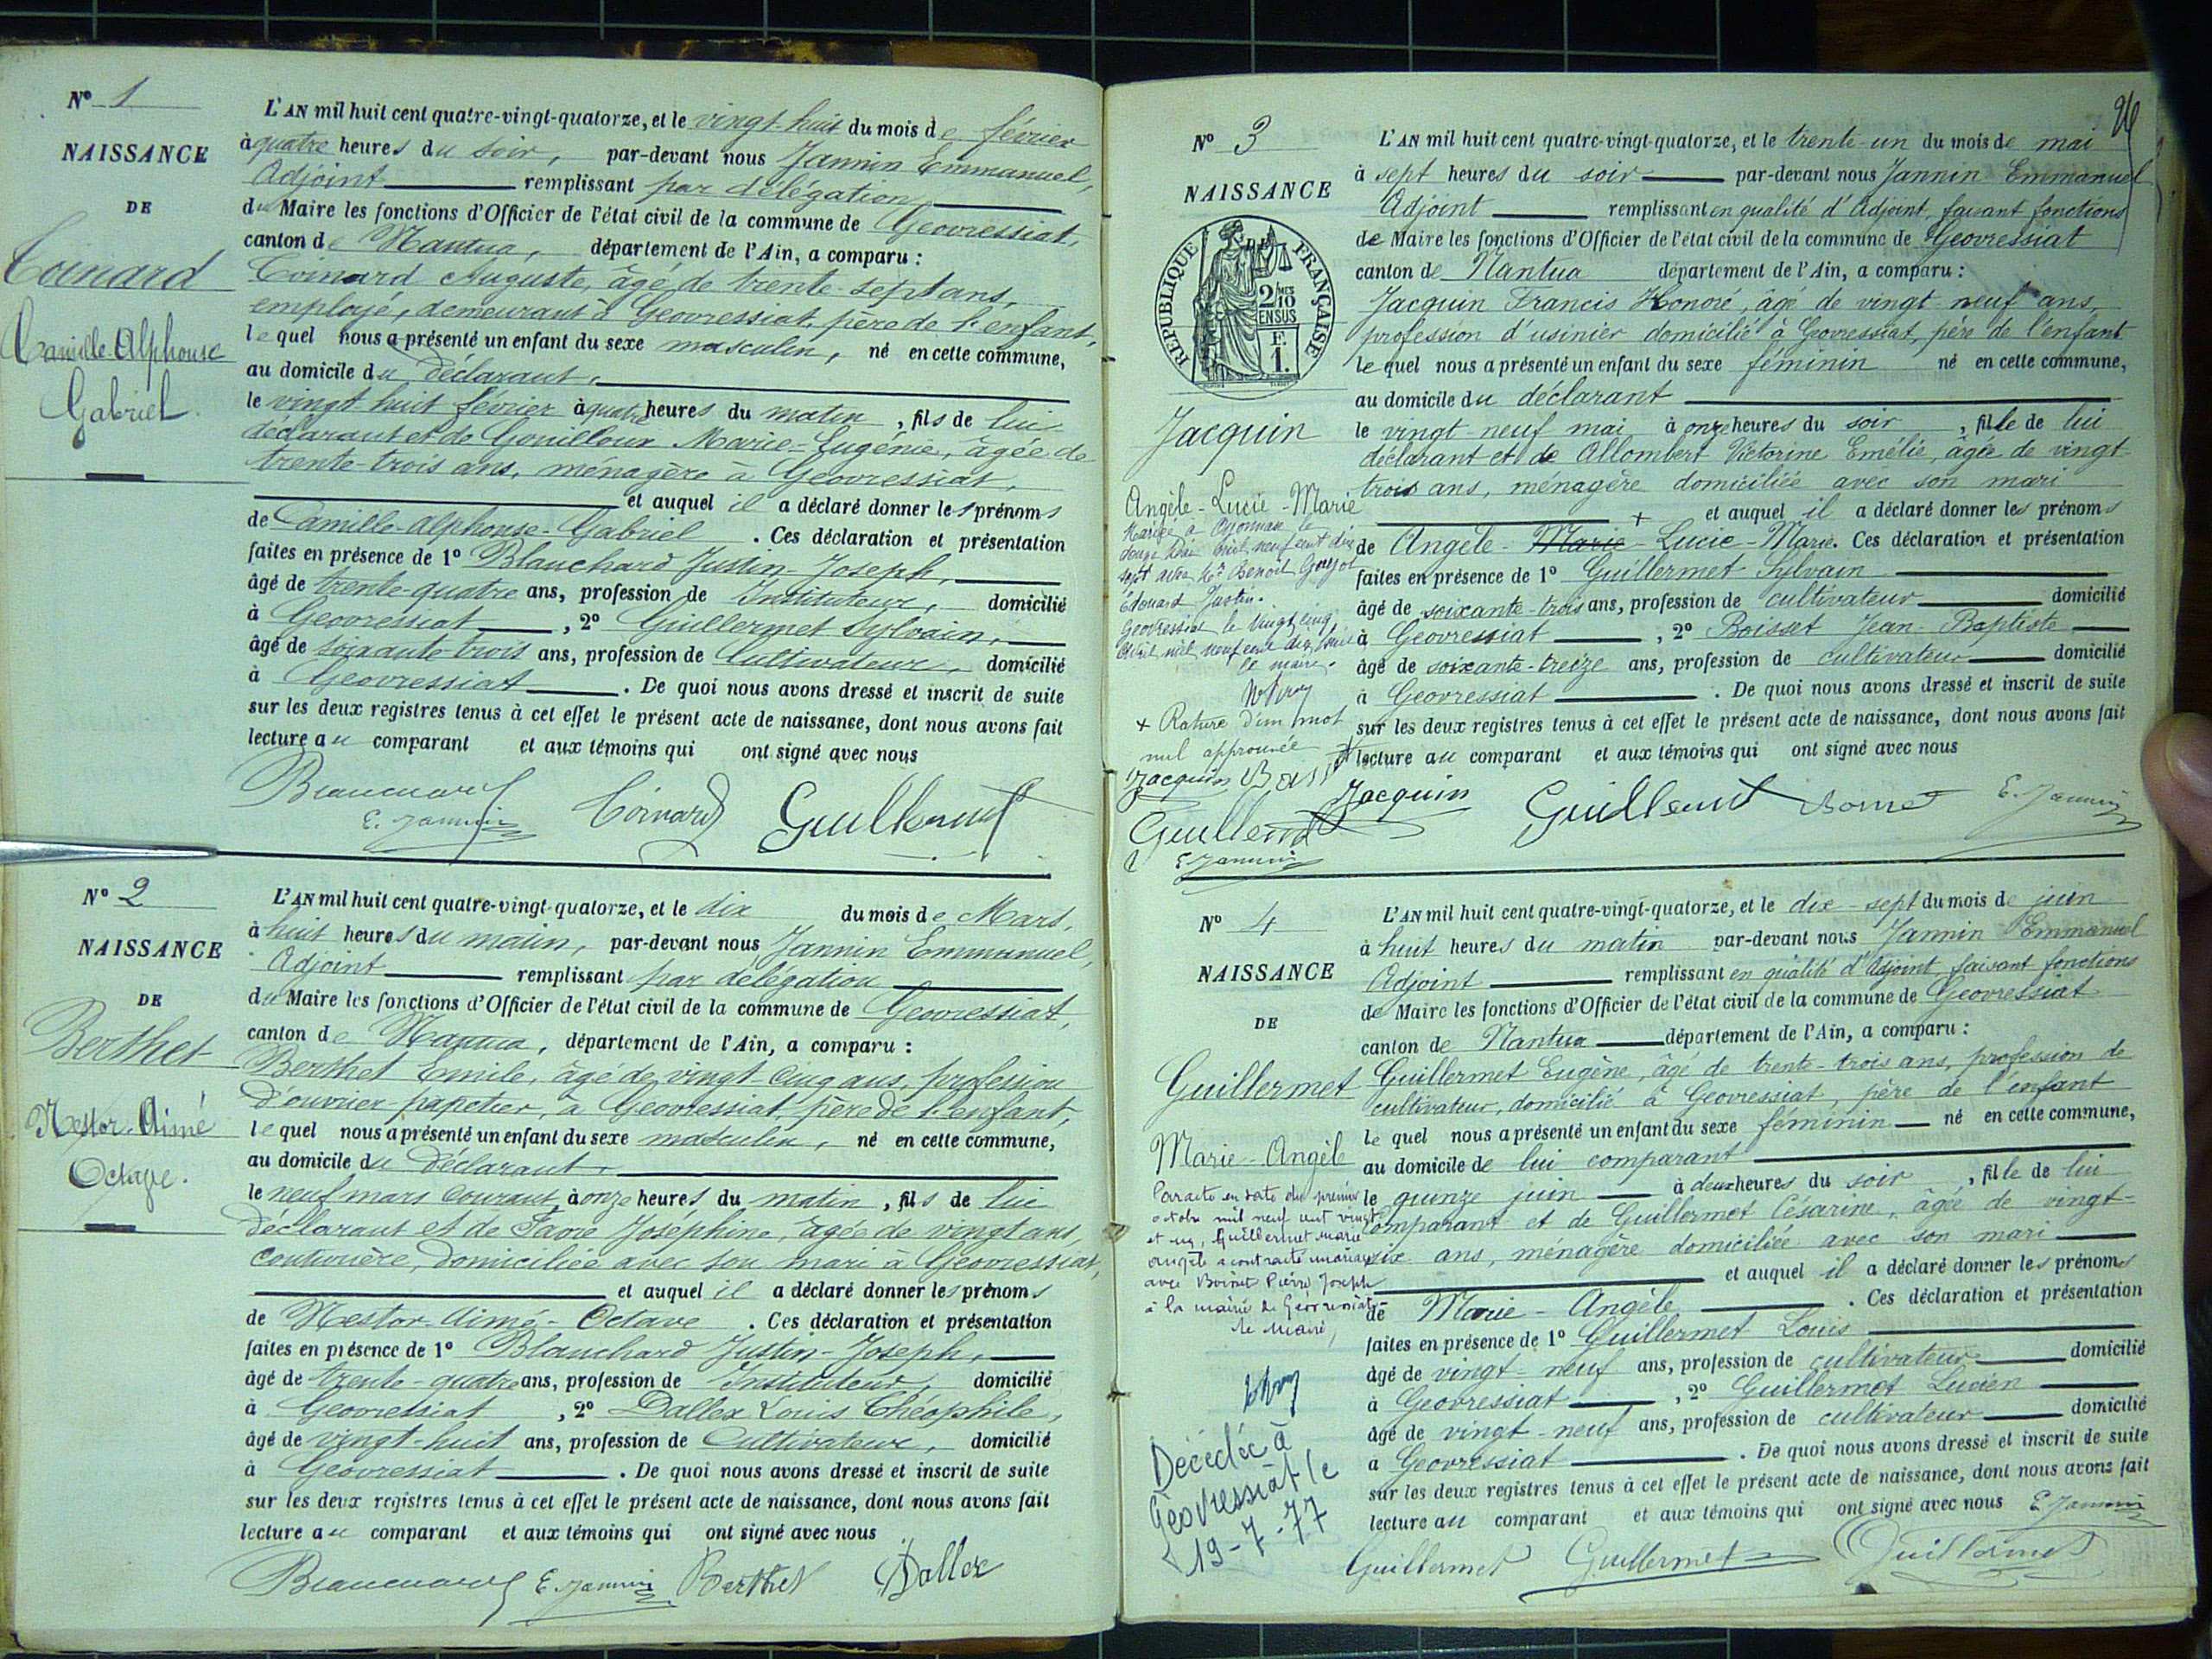 N° 1
NAISSANCE
DE
Coinard
Camille Alphonse
Gabriel.
L'AN mil huit cent quatre-vingt-quatorze, et le vingt-huit du mois de février
à quatre heures du soir, par-devant nous Jannin Emmanuel,
Adjoint remplissant par délégation
du Maire les fonctions d'Officier de l'état civil de la commune de Géovressiat,
canton de Nantua, département de l'Ain, a comparu :
Coinard Auguste, âgé de trente-sept ans,
employé, demeurant à Géovressiat, père de l'enfant,
lequel nous a présenté un enfant du sexe masculin, né en cette commune,
au domicile du déclarant,
le vingt-huit février à quatre heures du matin, fils de lui
déclarant et de Gouilloux Marie-Eugénie, âgée de
trente-trois ans, ménagère à Géovressiat,
et auquel il a déclaré donner les prénoms
de Camille-Alphonse-Gabriel. Ces déclaration et présentation
faites en présence de 1° Blanchard Justin-Joseph,
âgé de trente-quatre ans, profession de Instituteur, domicilié
à Géovressiat, 2° Guillermet Sylvain,
âgé de soixante-trois ans, profession de Cultivateur, domicilié
à Géovressiat. De quoi nous avons dressé et inscrit de suite
sur les deux registres tenus à cet effet le présent acte de naissanse, dont nous avons fait
lecture au comparant et aux témoins qui ont signé avec nous
Blanchard E. Jannin Coinard Guillermet
N° 2
NAISSANCE
DE
Berthet
Nestor-Aimé
Octave.
L'AN mil huit cent quatre-vingt-quatorze, et le dix du mois de Mars,
à huit heures du matin, par-devant nous Jannin Emmanuel,
Adjoint remplissant par délégation
du Maire les fonctions d'Officier de l'état civil de la commune de Géovressiat,
canton de Nantua, département de l'Ain, a comparu :
Berthet Emile, âgé de vingt-cinq ans, profession
d'ouvrier-papetier, à Géovressiat, père de l'enfant,
lequel nous a présenté un enfant du sexe masculin, né en cette commune,
au domicile du déclarant,
le neuf mars courant, à onze heures du matin, fils de lui
déclarant et de Favre Joséphine, âgée de vingt ans,
couturière, domiciliée avec son mari à Géovressiat,
et auquel il a déclaré donner les prénoms
de Nestor-Aimé-Octave. Ces déclaration et présentation
faites en présence de 1° Blanchard Justin-Joseph,
âgé de trente-quatre ans, profession de Instituteur, domicilié
à Géovressiat, 2° Dallex Louis Théophile,
âgé de vingt-huit ans, profession de Cultivateur, domicilié
à Géovressiat. De quoi nous avons dressé et inscrit de suite
sur les deux registres tenus à cet effet le présent acte de naissance, dont nous avons fait
lecture au comparant et aux témoins qui ont signé avec nous
Blanchard E. Jannin Berthet Dallex
N° 3
NAISSANCE
REPUBLIQUE FRANÇAISE
2/10 EN SUS
F. 1.
Jacquin
Angèle-Lucie-Marie
Mariée à Oyonnax le
douze mil neuf cent dix
sept avec Mr Benoit Gonjol
Edouard Justin.
Géovressiat le vingt cinq
avril mil neuf cent dix sept
le maire.
+ Rature d'un mot
nul approuvée
Jacquin
Guillermet
E. Jannin
L'AN mil huit cent quatre-vingt-quatorze, et le trente-un du mois de mai
à sept heures du soir par-devant nous Jannin Emmanuel
Adjoint remplissant en qualité d'Adjoint, faisant fonctions
de Maire les fonctions d'Officier de l'état civil de la commune de Géovressiat
canton de Nantua département de l'Ain, a comparu :
Jacquin Francis Honoré, âgé de vingt-neuf ans,
profession d'usinier domicilié à Géovressiat, père de l'enfant
lequel nous a présenté un enfant du sexe féminin né en cette commune,
au domicile du déclarant
le vingt-neuf mai à onze heures du soir, fille de lui
déclarant et de Allombert Victorine Emélie, âgée de vingt-
trois ans, ménagère domiciliée avec son mari
+ et auquel il a déclaré donner les prénoms
de Angèle-Marie-Lucie-Marie. Ces déclaration et présentation
faites en présence de 1° Guillermet Sylvain
âgé de soixante-trois ans, profession de cultivateur domicilié
à Géovressiat, 2° Boisset Jean-Baptiste
âgé de soixante-treize ans, profession de cultivateur domicilié
à Géovressiat. De quoi nous avons dressé et inscrit de suite
sur les deux registres tenus à cet effet le présent acte de naissance, dont nous avons fait
lecture au comparant et aux témoins qui ont signé avec nous
Jacquin Guillermet E. Jannin
N° 4
NAISSANCE
DE
Guillermet
Marie-Angèle
Par acte en date du premier
octobre mil neuf cent vingt
et un, Guillermet Marie
Angèle a contracté mariage
avec Pierre Joseph
à la mairie de Géovressiat
le maire,
Décédée à
Géovressiat le
19-7-77
L'AN mil huit cent quatre-vingt-quatorze, et le dix-sept du mois de juin
à huit heures du matin par-devant nous Jannin Emmanuel
Adjoint remplissant en qualité d'Adjoint, faisant fonctions
de Maire les fonctions d'Officier de l'état civil de la commune de Géovressiat
canton de Nantua département de l'Ain, a comparu :
Guillermet Eugène, âgé de trente-trois ans, profession de
cultivateur, domicilié à Géovressiat, père de l'enfant
lequel nous a présenté un enfant du sexe féminin né en cette commune,
au domicile de lui comparant
le quinze juin à deux heures du soir, fille de lui
comparant et de Guillermet Césarine, âgée de vingt-
six ans, ménagère domiciliée avec son mari
et auquel il a déclaré donner les prénoms
de Marie-Angèle. Ces déclaration et présentation
faites en présence de 1° Guillermet Louis
âgé de vingt-neuf ans, profession de cultivateur domicilié
à Géovressiat, 2° Guillermet Lucien
âgé de vingt-neuf ans, profession de cultivateur domicilié
à Géovressiat. De quoi nous avons dressé et inscrit de suite
sur les deux registres tenus à cet effet le présent acte de naissance, dont nous avons fait
lecture au comparant et aux témoins qui ont signé avec nous E. Jannin
Guillermet Guillermet Guillermet